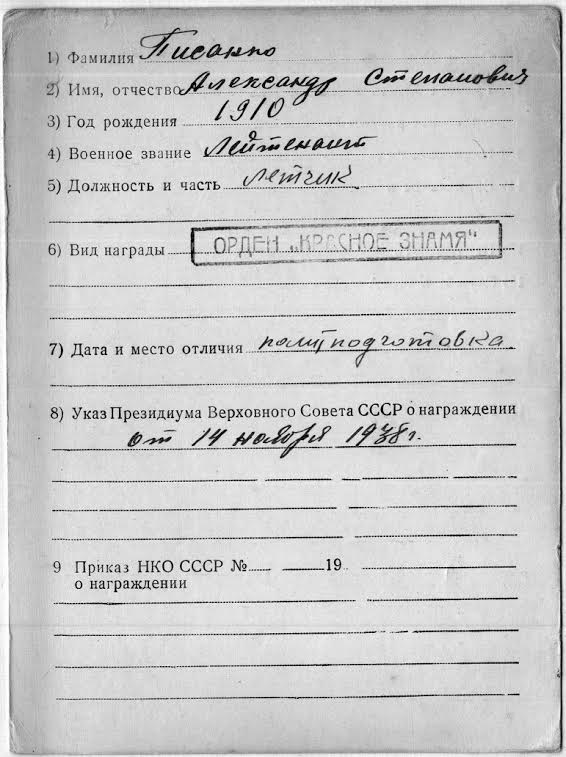 1) Фамилия Писанко
2) Имя, отчество Александр Степанович
3) Год рождения 1910
4) Военное звание Лейтенант
5) Должность и часть летчик
6) Вид награды ОРДЕН „КРАСНОЕ ЗНАМЯ"
7) Дата и место отличия политподготовка
8) Указ Президиума Верховного Совета СССР о награждении
от 14 ноября 1938 г.
9 Приказ НКО СССР № 19
о награждении